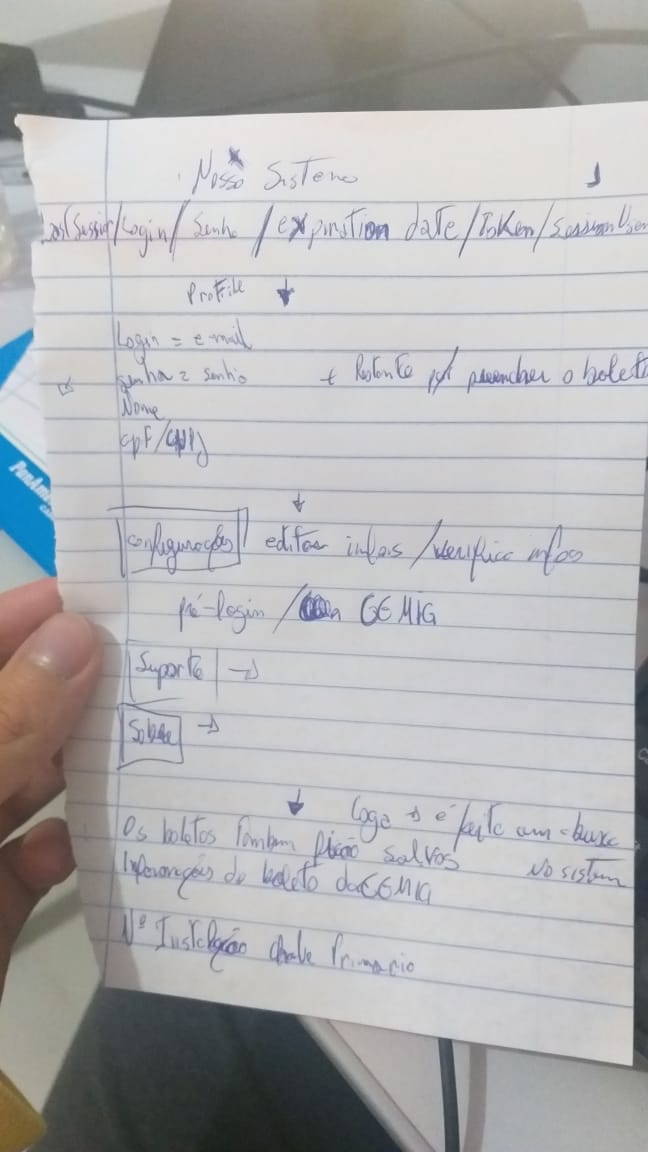 Nosso Sistema
Login / Senha / expiration date / Token / Session User
Profile ↓
Login = e-mail
Senha = senha + Restante p/ preencher o boleto
Nome
CPF/CNPJ
↓
Configurações editar infos / verifica infos
pré-login / CEMIG
Suporte →
Sobre →
↓ Loga → é feito um busca
Os boletos Também ficão salvos No sistem
Informações do boleto da CEMIG
Nº Instalação chave Primario
PanAm